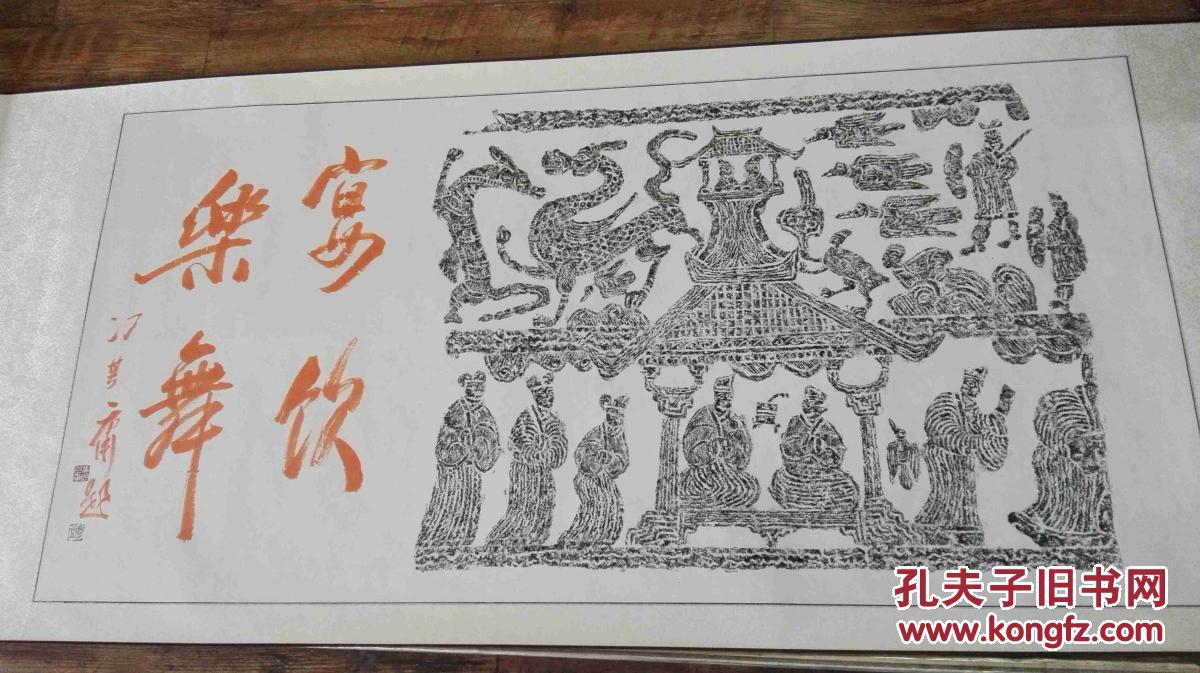 宴饮
樂舞
冯其庸题
孔夫子旧书网
www.kongfz.com